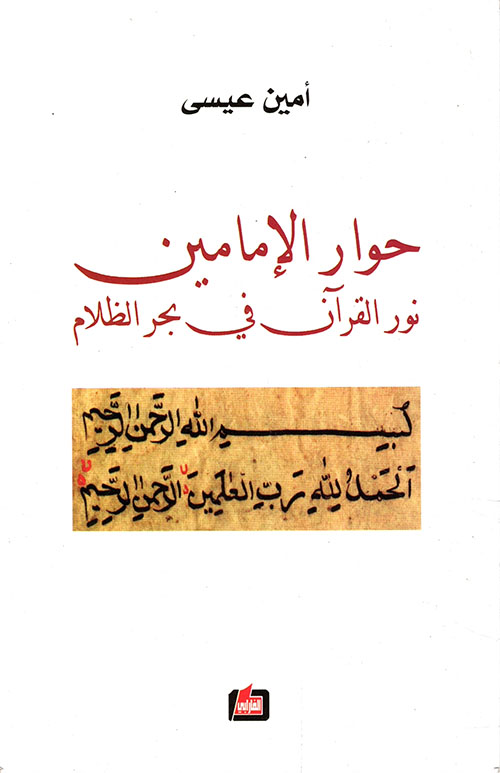 أمين عيسى
حوار الإمامين
نور القرآن في بحر الظلام
بسم الله الرحمن الرحيم
اَلْحَمْدُ لِلّٰهِ رَبِّ الْعٰلَمِينَ الرَّحْمٰنِ الرَّحِيمِ
الفارابي